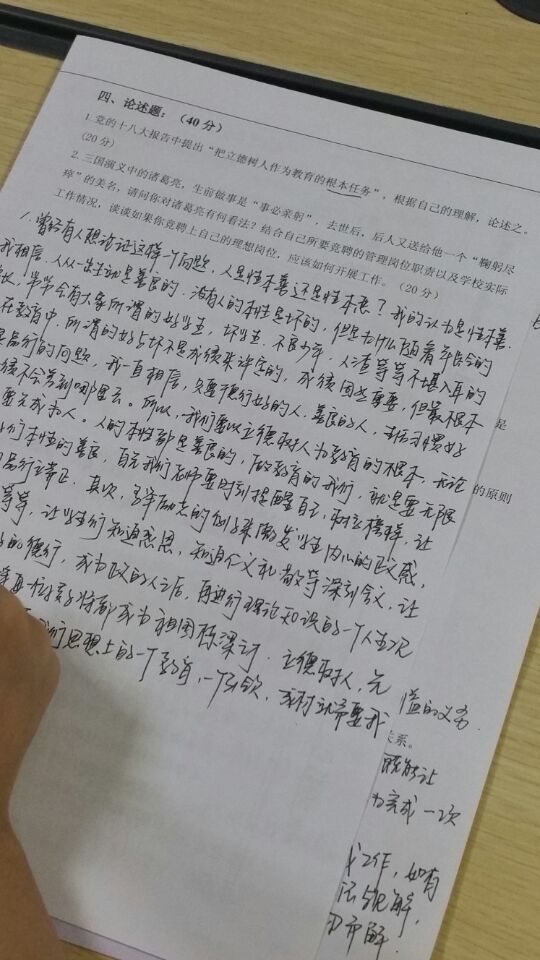 四、论述题：（40分）
1.党的十八大报告中提出“把立德树人作为教育的根本任务”，根据自己的理解，论述之。
（20分）
2.三国演义中的诸葛亮，生前做事是“事必亲躬”，去世后，后人又送给他一个“鞠躬尽
瘁”的美名，请问你对诸葛亮有何看法？结合自己所要竞聘的管理岗位职责以及学校实际
工作情况，谈谈如果你竞聘上自己的理想岗位，应该如何开展工作。（20分）
1. 曾经有人想论证这样一个问题，人是性本善还是性本恶？我的认为是性本善.
我相信，人从一出生动是善良的，没有人的本性是坏的，但是为什么随着年龄的
长，常常会有大家所谓的好学生，坏学生，不良少年，人渣等等不堪入耳的
在教育中，所谓的好与坏不是成绩来评定的，成绩固然重要，但最根本
是品行的问题，我一直相信，只要德行好的人，善良的人，生活习惯好
绩不会差到哪里去。所以，我们要以立德树人为教育的根本，无论
要先成为人。人的本性都是善良的，做教育的我们，就是要无限
们本性的善良，首先我们老师要时刻提醒自己，树立榜样，让
品行立正，其次，多举励志的例子来激发学生内心的正义感，
等等，让学生们知道感恩，知道仁义礼智等深刻含义，让
的德行，成为正义的人之后，再进行理论知识的一个人生观
孩子将都成为祖国栋梁才. 立德树人，先
我们思想上的一个教育，一个引领，
是
的原则
义务.
关系。
能让
为完成一次
工作，如有
解，